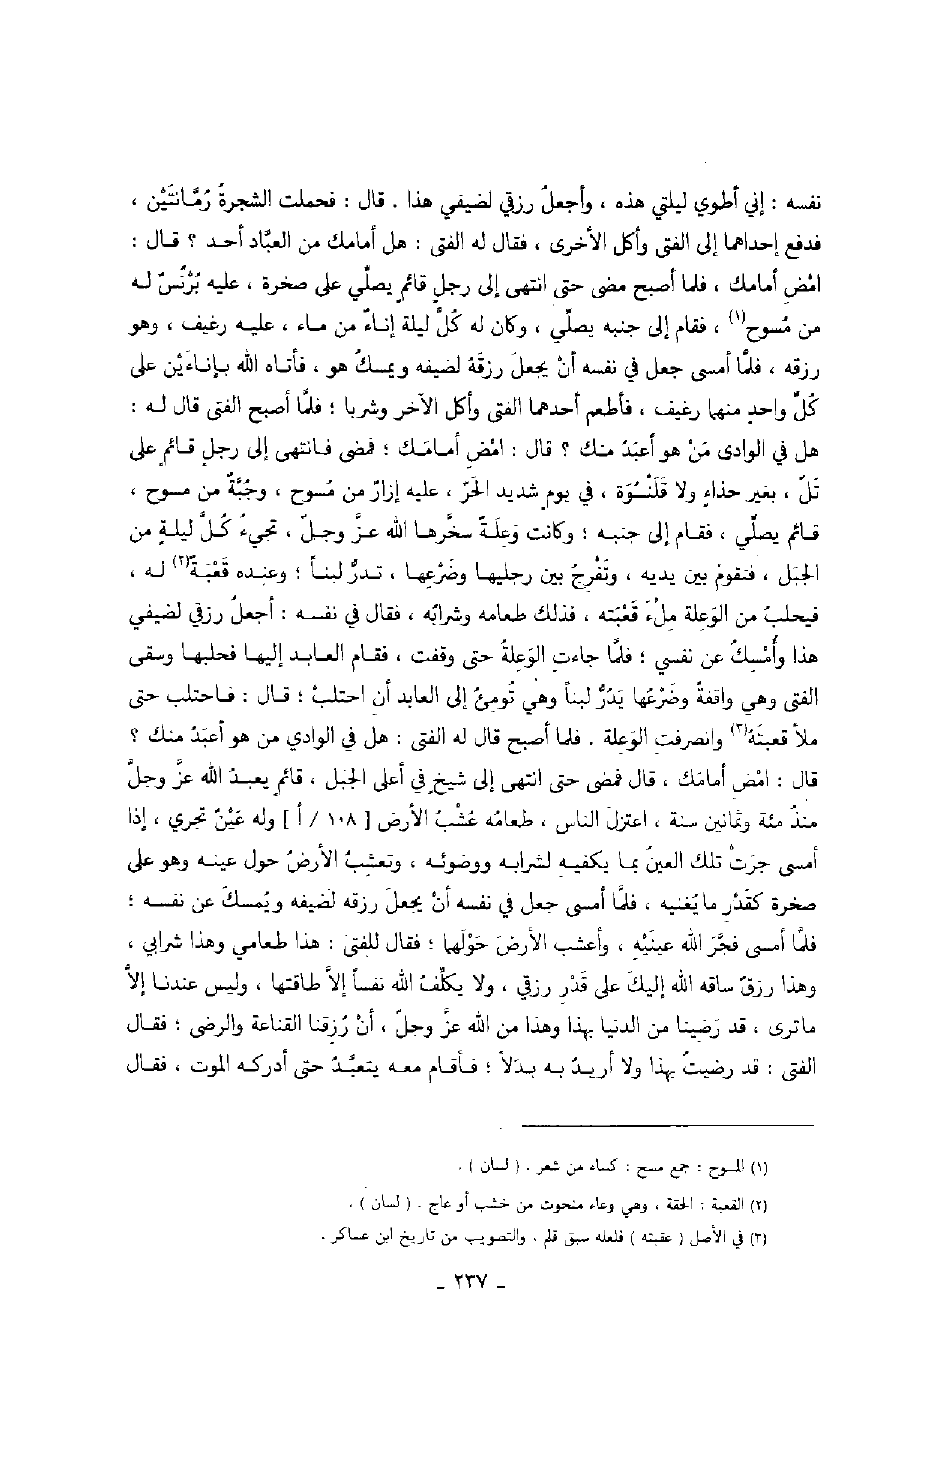 نفسه : إني أطوي ليلتي هذه ، وأجعلُ رزقي لضيفي هذا . قال : فحملت الشجرةُ رُمَّانَتَيْن ،
فدفع إحداهما إلى الفتى وأكل الأخرى ، فقال له الفتى : هل أمامك من العبَّاد أحد ؟ قال :
امْضِ أمامك ، فلما أصبح مضى حتى انتهى إلى رجلٍ قائمٍ يصلِّي على صخرة ، عليه بُرْنُسٌ له
من مُسوح(١) ، فقام إلى جنبه يصلّي ، وكان له كُلَّ ليلة إناءٌ من ماء ، عليه رغيف ، وهو
رزقه ، فلمَّا أمسى جعل في نفسه أنْ يجعلَ رزقَهُ لضيفه ويمسكُ هو ، فأتاه الله بإناءَيْن على
كلِّ واحدٍ منهما رغيف ، فأطعم أحدهما الفتى وأكل الآخر وشربا ؛ فلمَّا أصبح الفتى قال له :
هل في الوادي مَنْ هو أعبَدُ منك ؟ قال : امْضِ أمامَك ؛ فمضى فانتهى إلى رجلٍ قائمٍ على
تَلّ ، بغير حذاءٍ ولا قَلَنْسُوَة ، في يومٍ شديد الحَرّ ، عليه إزارٌ من مُسوح ، وجُبَّةٌ من مسوح ،
قائم يصلِّي ، فقام إلى جنبه ؛ وكانت وَعِلَةٌ سخَّرها الله عزَّ وجلّ ، تجيءُ كُلَّ ليلةٍ من
الجَبَل ، فتقومُ بين يديه ، وتَفْرِجُ بين رجليها وضَرْعِها ، تدرُّ لبناً ؛ وعنده قَعْبَةٌ(٢) له ،
فيحلبُ من الوَعِلة مِلْءَ قَعْبَته ، فذلك طعامه وشرابُه ، فقال في نفسه : أجعلُ رزقي لضيفي
هذا وأُمْسِكُ عن نفسي ؛ فلمَّا جاءتِ الوَعِلةُ حتى وقفت ، فقام العابد إليها فحلبها وسقى
الفتى وهي واقفةٌ وضَرْعُها يَدُرُّ لبناً وهي تُومِئُ إلى العابد أن احتلبْ ؛ قال : فاحتلب حتى
ملأ قعبتَهُ(٣) وانصرفتِ الوَعِلة . فلما أصبح قال له الفتى : هل في الوادي من هو أعبَدُ منك ؟
قال : امْضِ أمامَك ، قال فمضى حتى انتهى إلى شيخٍ في أعلى الجَبَل ، قائمٍ يعبدُ الله عزَّ وجلَّ
منذُ مئة وثمانين سنة ، اعتزلَ الناس ، طعامُه عُشْبُ الأرض [ ١٠٨ / أ ] وله عَيْنٌ تجري ، إذا
أمسى جرَتْ تلك العينُ بما يكفيه لشرابه ووضوئه ، وتعشبُ الأرضُ حول عينه وهو على
صخرة كقَدْرِ ما يُغنيه ، فلمَّا أمسى جعل في نفسه أنْ يجعلَ رزقه لضيفه ويُمسكَ عن نفسه ؛
فلمَّا أمسى فجَّرَ الله عينَيْه ، وأعشب الأرضَ حَوْلَها ؛ فقال للفتى : هذا طعامي وهذا شرابي ،
وهذا رزقٌ ساقه الله إليكَ على قَدْرِ رزقي ، ولا يكلِّفُ الله نفساً إلاَّ طاقتها ، وليس عندنا إلاَّ
ماترى ، قد رَضِينا من الدنيا بهذا وهذا من الله عزَّ وجلّ ، أنْ رُزِقنا القناعة والرضى ؛ فقال
الفتى : قد رضيتُ بهذا ولا أريدُ به بدَلاً ؛ فأقام معه يتعبَّدُ حتى أدركه الموت ، فقال
(١) المسوح : جمع مسح : كساء من شعر . ( لسان ) .
(٢) القعبة : الحقة ، وهي وعاء منحوت من خشب أو عاج . ( لسان ) .
(٣) في الأصل ( عقبته ) فلعله سبق قلم . والتصويب من تاريخ ابن عساكر .
- ٢٣٧ -